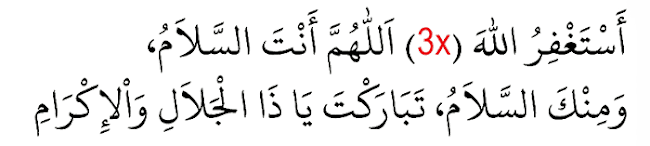 أَسْتَغْفِرُ اللهَ (3x) اَللّٰهُمَّ أَنْتَ السَّلاَمُ،
وَمِنْكَ السَّلاَمُ، تَبَارَكْتَ يَا ذَا الْجَلاَلِ وَاْلإِكْرَامِ